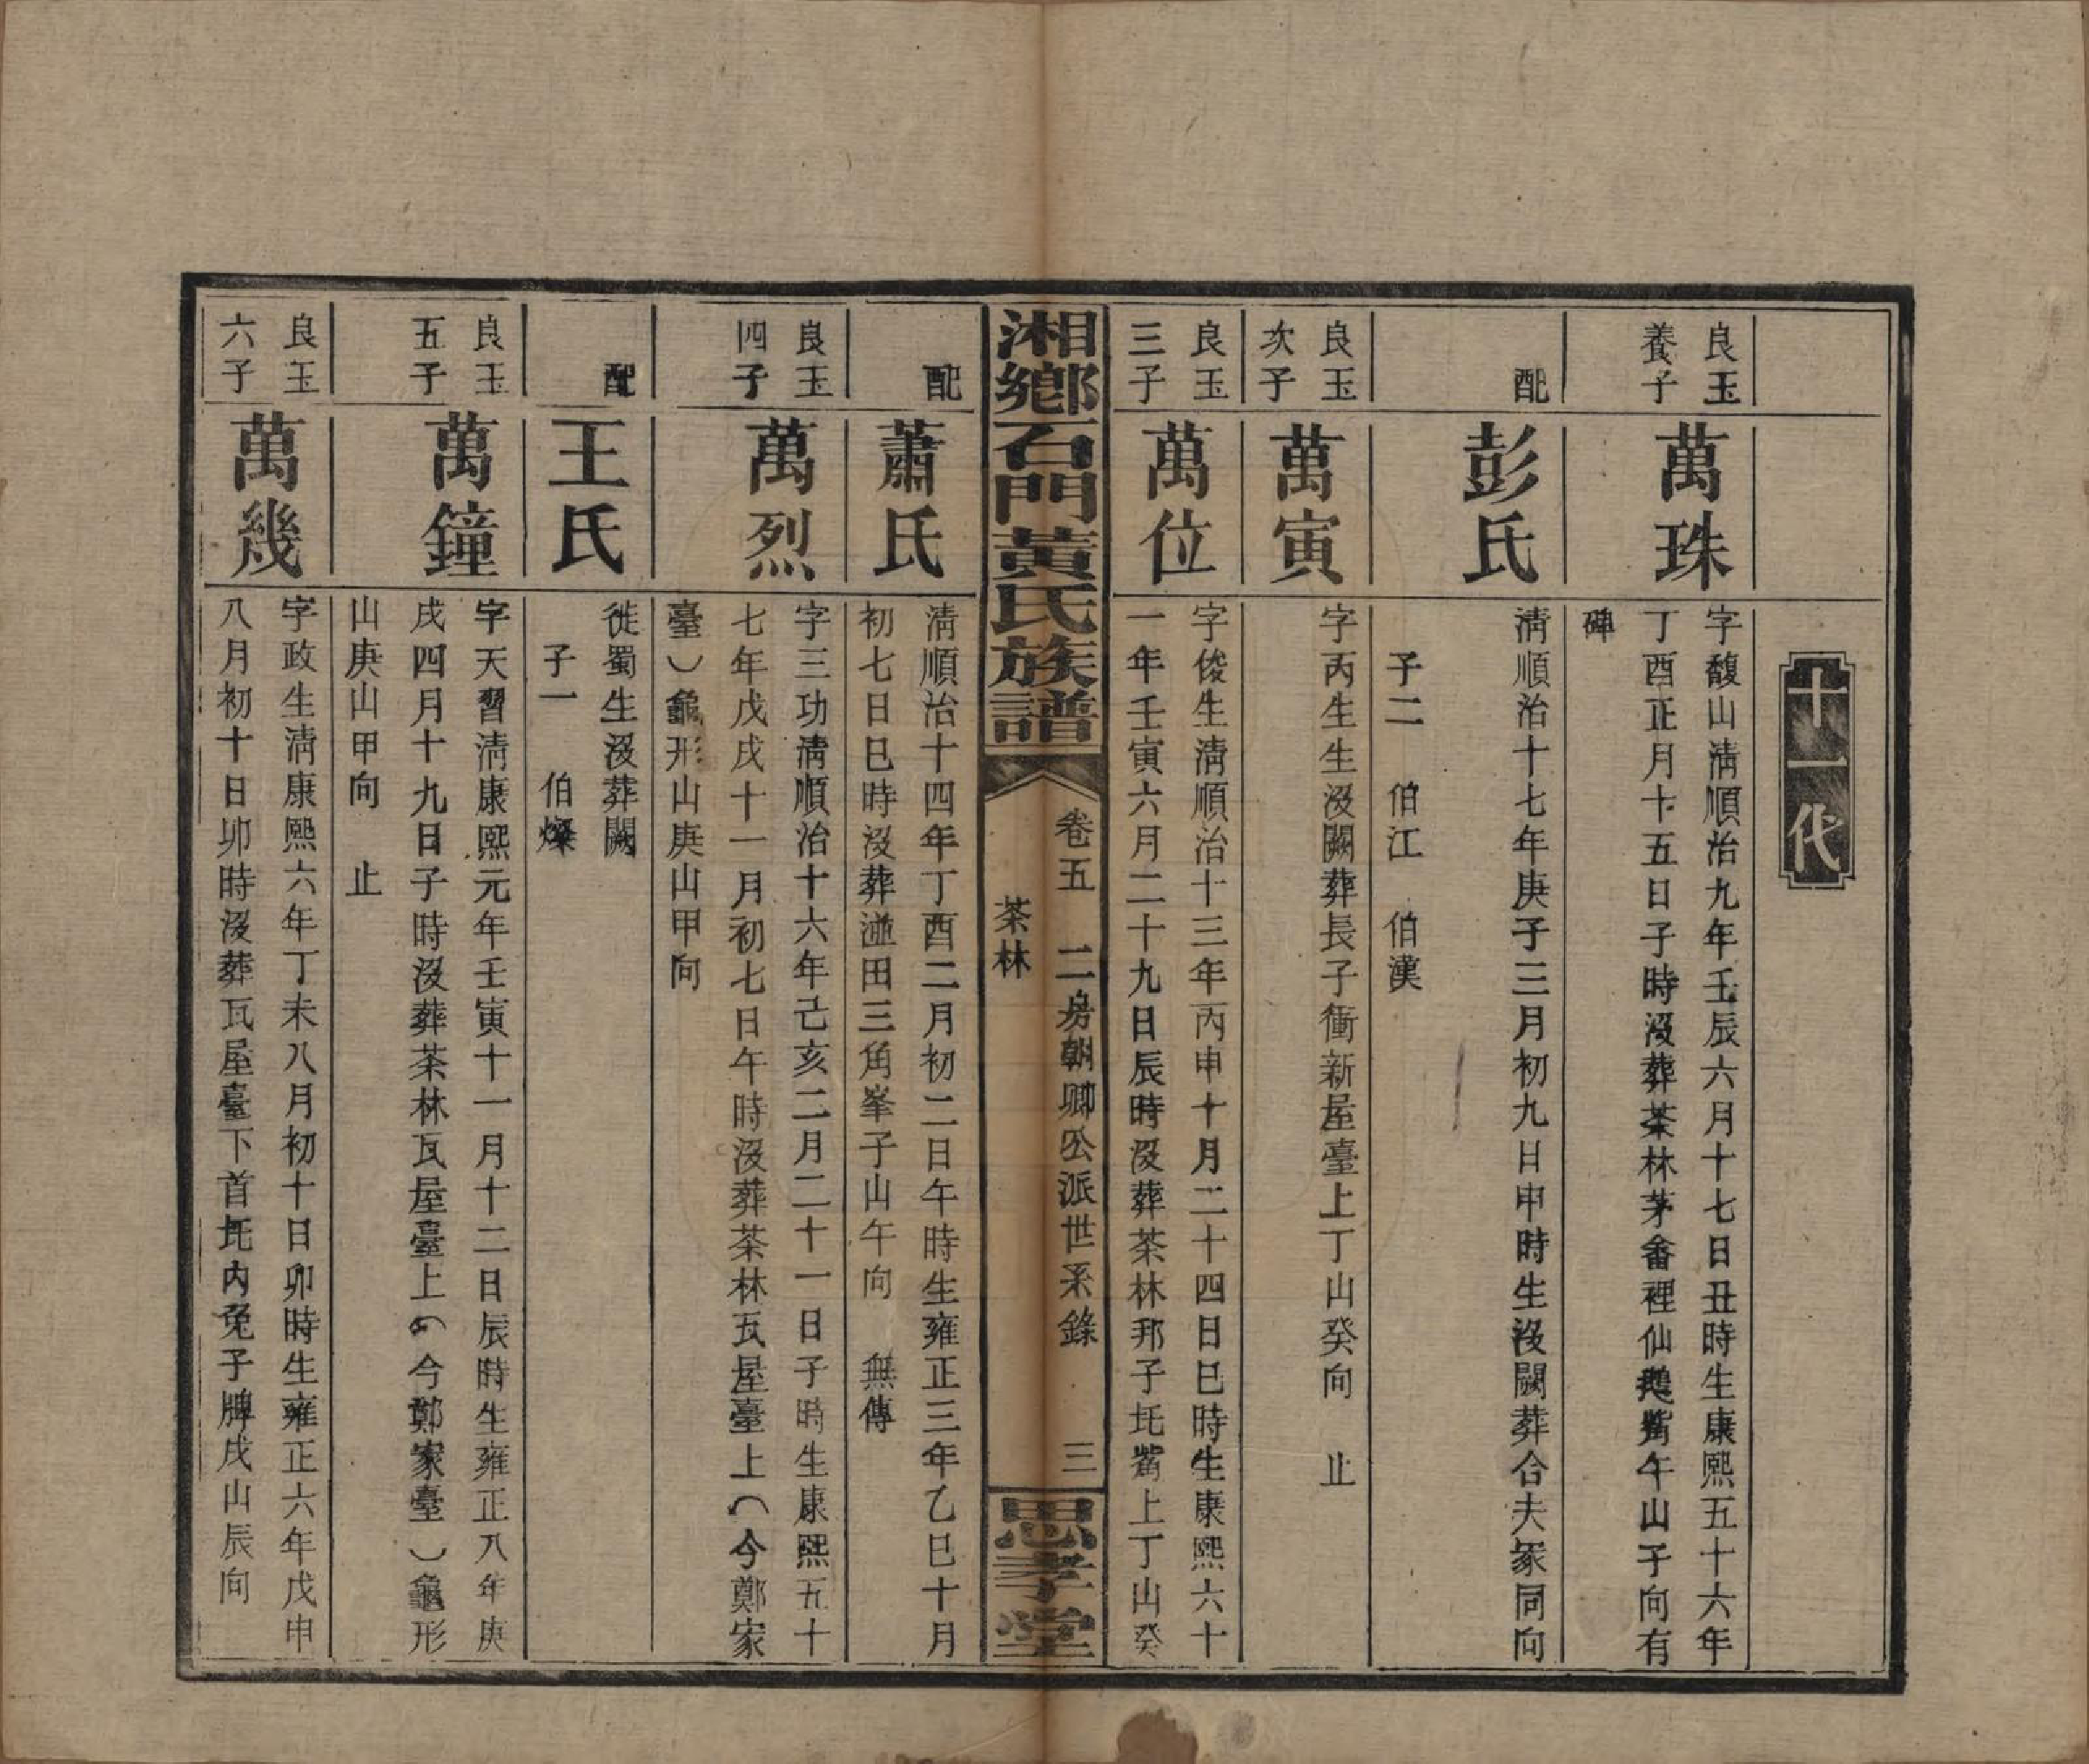 十一代
良玉
養子
萬珠
字馥山淸順治九年壬辰六月十七日丑時生康熙五十六年
丁酉正月十五日子時沒葬茶林茅畬裡仙鵝觜午山子向有
碑
配
彭氏
淸順治十七年庚子三月初九日申時生沒闕葬合夫冢同向
子二　伯江　伯漢
良玉
次子
萬寅
字丙生生沒闕葬長子衝新屋臺上丁山癸向　止
良玉
三子
萬位
字俊生淸順治十三年丙申十月二十四日巳時生康熙六十
一年壬寅六月二十九日辰時沒葬茶林邦子坉觜上丁山癸
湘鄉石門黃氏族譜
卷五　二房朝卿公派世系錄　三
茶林
思孝堂
配
蕭氏
淸順治十四年丁酉二月初二日午時生雍正三年乙巳十月
初七日巳時沒葬湴田三角峯子山午向　無傳
良玉
四子
萬烈
字三功淸順治十六年己亥二月二十一日子時生康熙五十
七年戊戌十一月初七日午時沒葬茶林瓦屋臺上（今鄭家
臺）龜形山庚山甲向
配
王氏
徙蜀生沒葬闕
子一　伯燦
良玉
五子
萬鐘
字天習淸康熙元年壬寅十一月十二日辰時生雍正八年庚
戌四月十九日子時沒葬茶林瓦屋臺上（今鄭家臺）龜形
山庚山甲向　止
良玉
六子
萬幾
字政生淸康熙六年丁未八月初十日卯時生雍正六年戊申
八月初十日卯時沒葬瓦屋臺下首坉內兔子牌戌山辰向